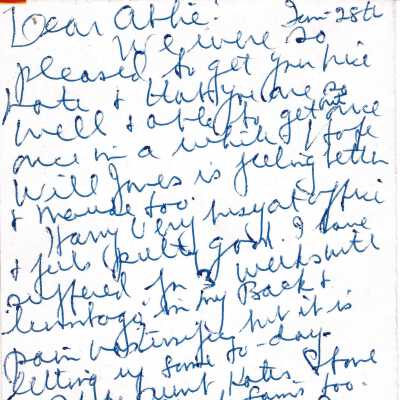 Dear Abbie! Jan-28th
We were so
pleased to get your nice
note & that you are so
well & able to get out once
once in a while. I hope
Will Jones is feeling better
& Maude too.
Harry very busy at office
& feels pretty good. I have
suffered for 3 weeks with
lumbago in my Back &
pain but it is
letting up some to-day.
too.